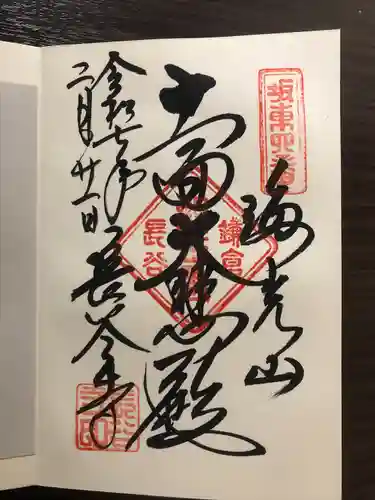 坂東四番
海光山
十一面大悲殿
鎌倉
長谷
長谷寺
令和七年
二月廿一日